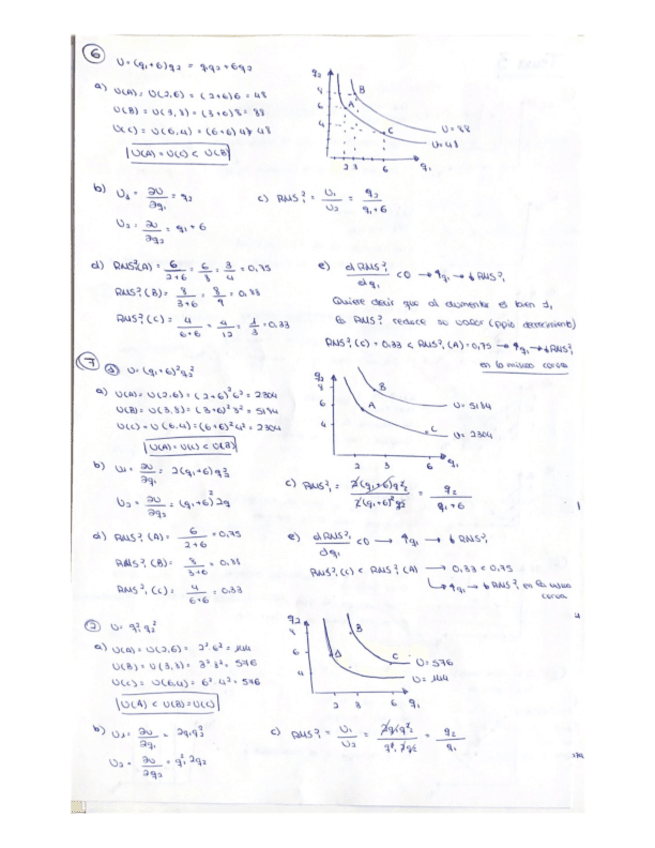 6
U=(q1+6)q2 = q1q2+6q2
a) U(A)= U(2,6) = (2+6)6 = 48
U(B) = U(3,8) = (3+6)8 = 88
U(C) = U(6,4) = (6+6)4 = 48
U(A) = U(C) < U(B)
q2
8
6
4
A
B
C
U=88
U=48
2 3 6 q1
b) U1 = ∂U/∂q1 = q2
U2 = ∂U/∂q2 = q1+6
c) RMS²₁ = U1/U2 = q2/(q1+6)
d) RMS²₁(A) = 6/(2+6) = 6/8 = 3/4 = 0,75
RMS²₁(B) = 8/(3+6) = 8/9 = 0,88
RMS²₁(C) = 4/(6+6) = 4/12 = 1/3 = 0,33
e) dRMS²₁/dq1 <0 → ↑q1 → ↓RMS²₁
Quiere decir que al aumentar el bien 1,
la RMS²₁ reduce su valor (ppio decrecimiento)
RMS²₁(C) = 0,33 < RMS²₁(A) = 0,75 → ↑q1 → ↓RMS²₁
en la misma curva
7
1 U= (q1+6)²q2²
a) U(A) = U(2,6) = (2+6)²6² = 2304
U(B) = U(3,8) = (3+6)²8² = 5184
U(C) = U(6,4) = (6+6)²4² = 2304
U(A) = U(C) < U(B)
q2
8
6
4
A
B
C
U= 5184
U= 2304
2 3 6 q1
b) U1 = ∂U/∂q1 = 2(q1+6)q2²
U2 = ∂U/∂q2 = (q1+6)²2q
c) RMS²₁ = 2(q1+6)q2²/2(q1+6)²q2 = q2/(q1+6)
d) RMS²₁(A) = 6/(2+6) = 0,75
RMS²₁(B) = 8/(3+6) = 0,88
RMS²₁(C) = 4/(6+6) = 0,33
e) dRMS²₁/dq1 <0 → ↑q1 → ↓RMS²₁
RMS²₁(C) < RMS²₁(A) → 0,33 < 0,75
↳ ↑q1 → ↓RMS²₁ en la misma
curva
2 U= q1²q2²
a) U(A) = U(2,6) = 2²·6² = 144
U(B) = U(3,8) = 3²8² = 576
U(C) = U(6,4) = 6²·4² = 576
U(A) < U(B) = U(C)
q2
8
6
4
A
B
C
U=576
U=144
2 3 6 q1
b) U1 = ∂U/∂q1 = 2q1q2²
U2 = ∂U/∂q2 = q1²2q2
c) RMS²₁ = U1/U2 = 2q1q2²/q1²2q2 = q2/q1